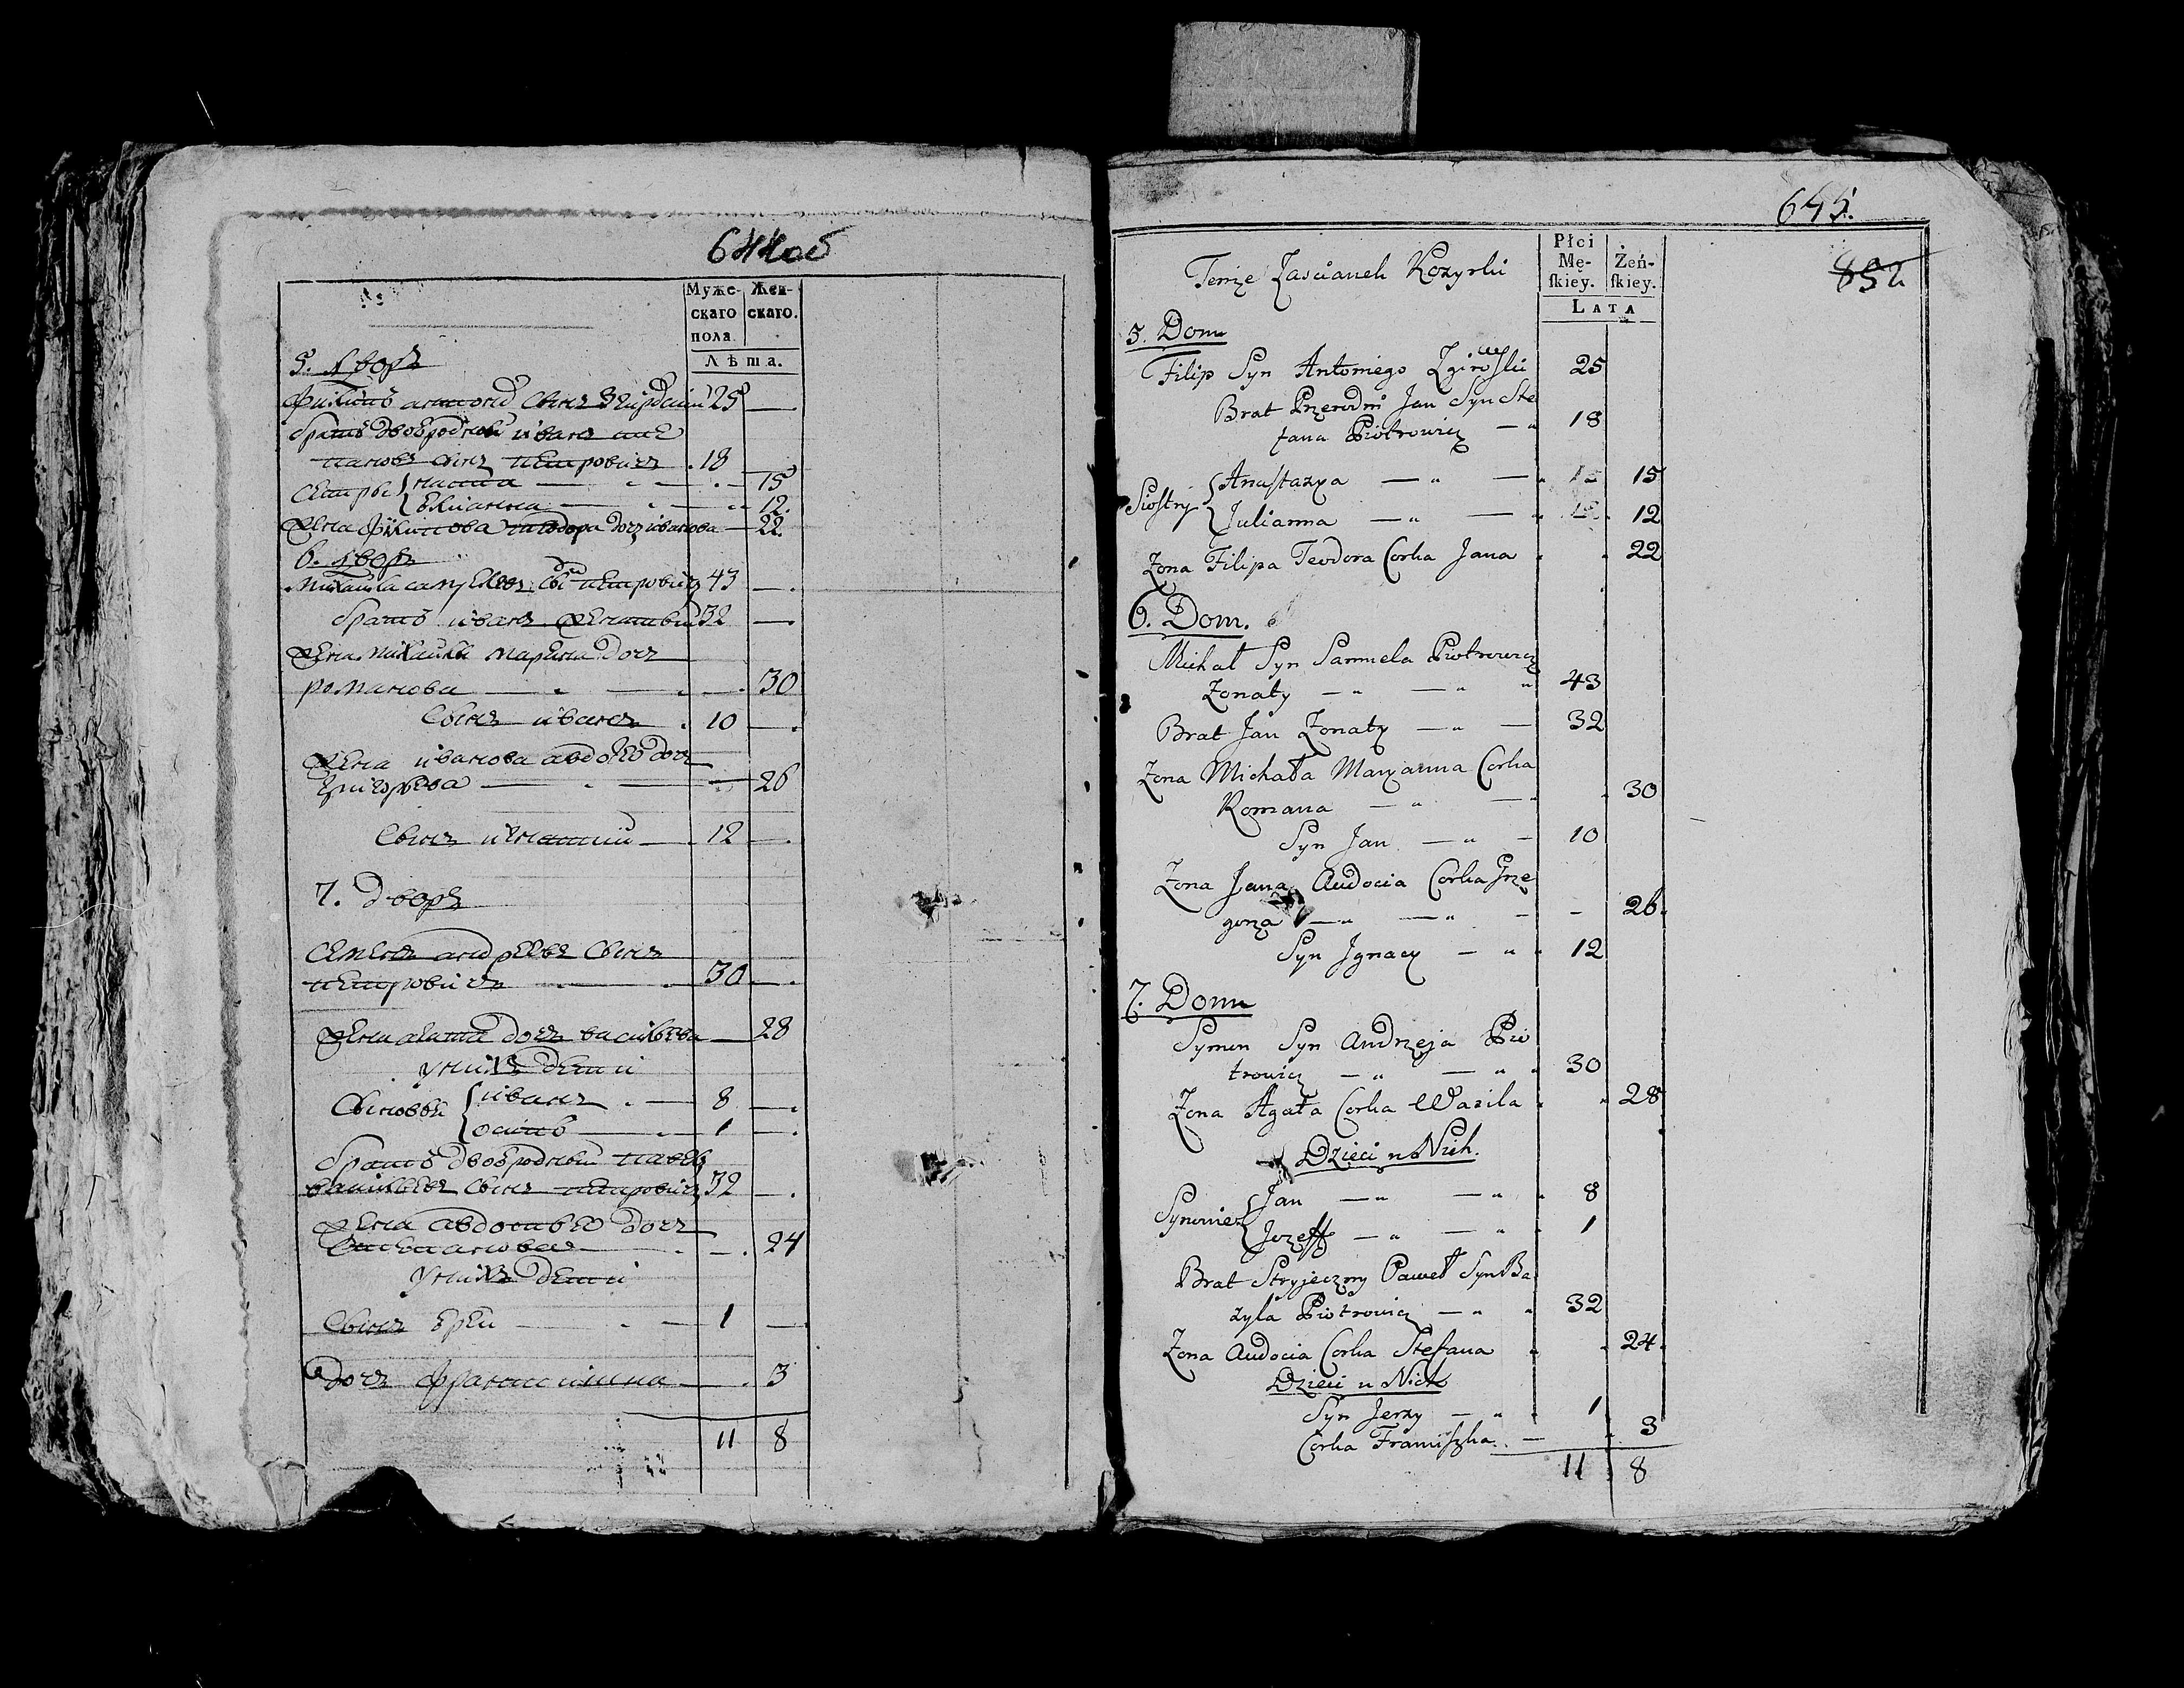 644об
Муже- Жен-
скаго скаго.
пола.
Лѣта.
5. Дворъ
Филипъ антоновъ сынъ Згирский 25
братъ двоюродный иванъ сте
пановъ сынъ петровичъ 18
сестры настя 15
Юлианна 12
жена филипова тодора дочь иванова 22
6. Дворъ
михайла самуелевъ сы петровичъ 43
братъ иванъ женатый 32
жена михайлы марьяна дочь
романова 30
Сынъ иванъ 10
жена иванова авдотьо дочь
григорьева 26
Сынъ игнатий 12
7. Дворъ
семенъ андреевъ сынъ
петровичъ 30
жена агата дочь васильева 28
у них дети
Сыновьи иванъ 8
осипъ 1
братъ двоюродный павелъ
васильевъ сынъ петровичъ 32
жена авдотьо дочь
степанова 24
у них дети
Сынъ юреи 1
дочь францишка 3
11 8
645.
852
Tenże Zascianek Kozyrki
Płci
Mę- Żeń-
ſkiey. ſkiey.
LATA
5. Dom
Filip Syn Antoniego Zgirſki 25
Brat Przerodni Jan Syn Ste
fana Piotrowicz 18
Siostry Anaſtazya 15
Julianna 12
Zona Filipa Teodora Corka Jana 22
6. Dom.
Michał Syn Samuela Piotrowicz
Zonaty 43
Brat Jan Zonaty 32
Zona Michała Maryanna Corka
Romana 30
Syn Jan 10
Zona Jana Audocia Corka Grze
gorza 26
Syn Jgnacy 12
7. Dom
Symon Syn Andrzeja Pio
trowicz 30
Zona Agata Corka Wazila 28
Dzieci u Nich.
Synowie Jan 8
Jozeff 1
Brat Stryjeczny Paweł Syn Ba
zyla Piotrowicz 32
Zona Audocia Corka Stefana 24
Dzieci u Nich
Syn Jerzy 1
Corka Franciſzka 3
11 8